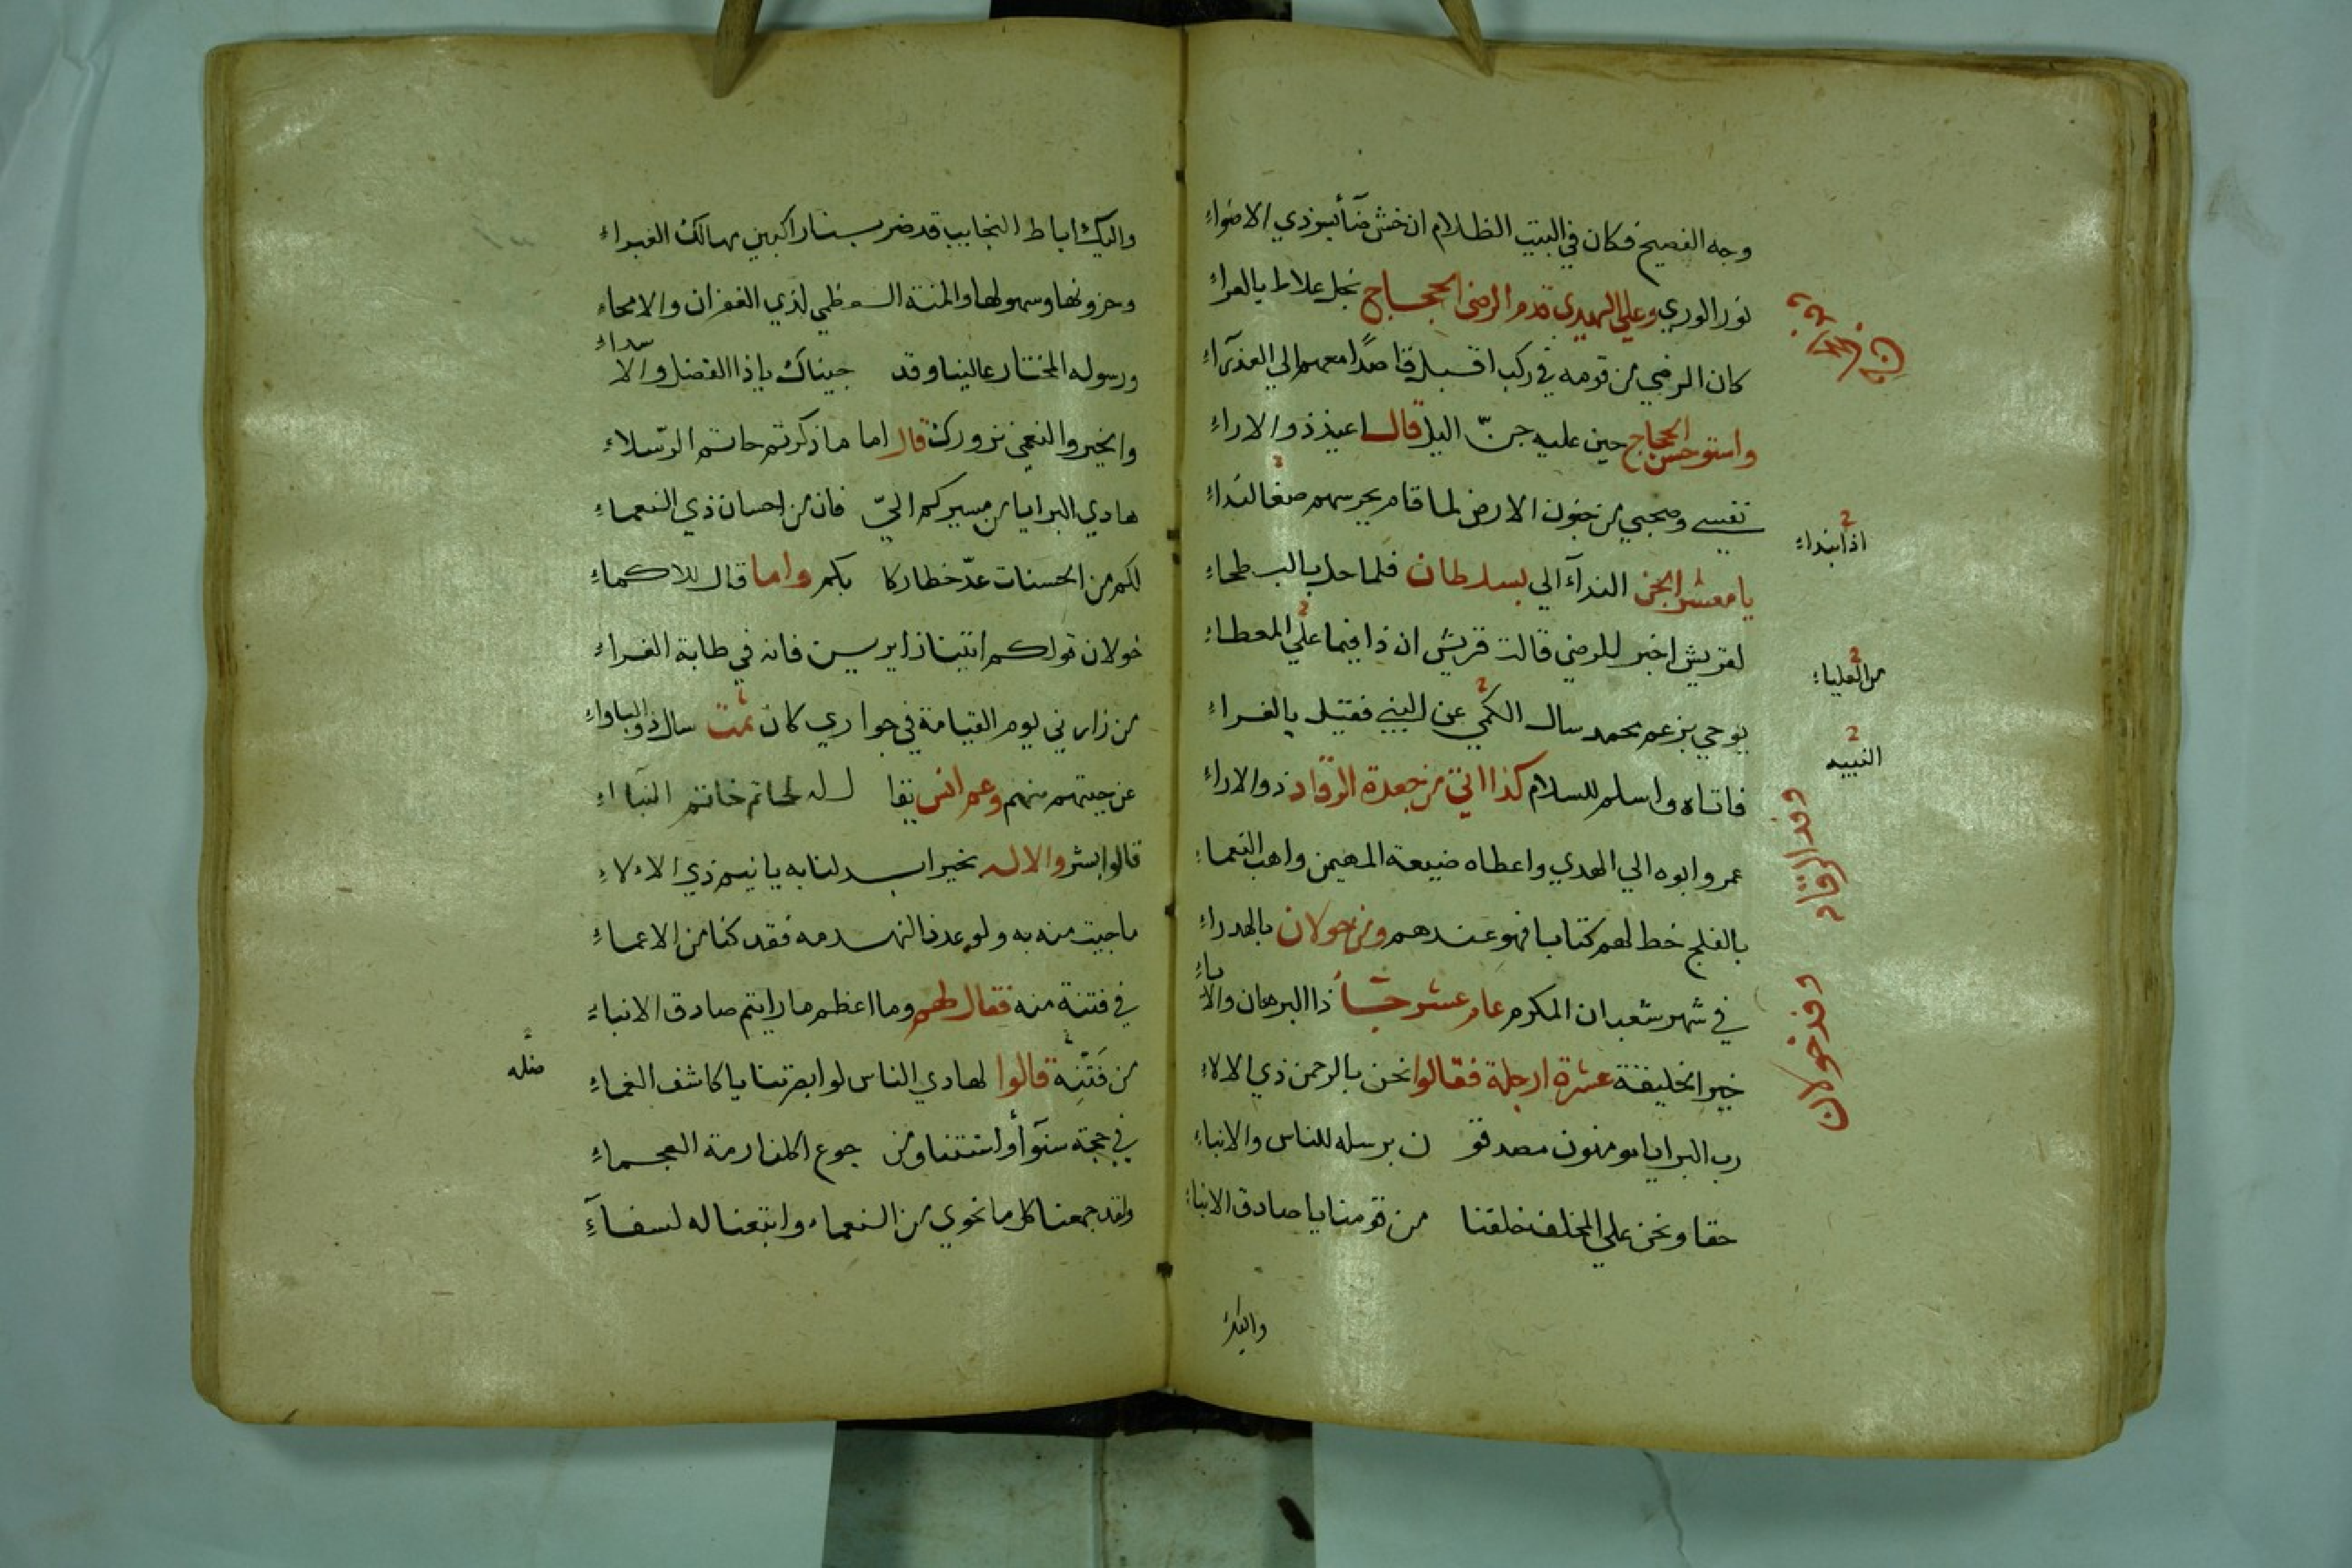 وجه الفصيح فكان في البيت الظلام ان خش ضآ بنوذي الاضواء
نور الوري وعلي المهدي قدم الرضى الحجاج نجل علاط بالعراء
كان الرضي من قومه في ركب اقبل قاصدًا معهم الي العذرآء
واستوحش الحجاج حين عليه جنّ اليل قال اعيذ ذو الاراء
نفسي وصحبي من جنون الارض لما قام يحرسهم صغا لنداء
اذا بنداء
يا معشر الجن الندآء الي بسلطان فلما حل بالبطحاء
لقريش اخبر للرضي قالت قريش ان ذا فيما علي المعطاء
من العلياء
يوحي بزعم محمد سال الكمي عن النبي فقيل بالغراء
النبيه
فاتاه واسلم للسلام كذا اتي من جعدة الرقاد ذو الاراء
وفد الرقاد
عمرو ابوه الي الهدي واعطاه ضيعة المهيمن واهب النعماء
بالفلج خط لهم كتابا فهو عندهم ومن خولان بالهدراء
في شهر شعبان المكرم عام عشر جآء ذا البرهان والاباء
وفد خولان
خير الخليقة عشرة ارجلة فقالوا نحن بالرحمن ذي الالاء
رب البرايا مومنون مصدقون برسله للناس والانباء
حقا ونحن علي المخلف خلفنا من قومنا يا صادق الانباء
واليك
واليك اباط النجايب قد ضربنا راكبين مهالك الغبراء
وحزونها وسهولها والمنة العظمي لذي الغفران والامحاء
ورسوله المختار عالينا وقد جيناك يا ذا الفضل والاسداء
والخير والنعمي نزورك قال اما ما ذكرتم حاتم الرسلاء
هادي البرايا من مسيركم اليّ فان من احسان ذي النعماء
لكم من الحسنات عدّ خطا ركابكم واما قال للاكماء
خولان قولكم اتينا زايرين فانه في طابة الغراء
من زارني يوم القيامة في جواري كان ثمت سال ذو الباواء
عن جيتهم منهم وعم انس يقال له لحاتم خاتم النبآء
قالوا ابشر والاله بخير ابدلنا به يا نيم ذي الالاء
ما جيت منه به ولو عدنا لنهدمه فقد كنا من الاعماء
في فتنة منه فقال لهم وما اعظم ما رايتم صادق الانباء
من فَتْنِه قالوا لهادي الناس لو ابصرتنا يا كاشف الغماء
ضله
في حجة سنوآء واستنا ومن جوع اكلنا رمة العجماء
ولقد جمعنا كل ما نحوي من النعماء وابتعنا له لسفآء